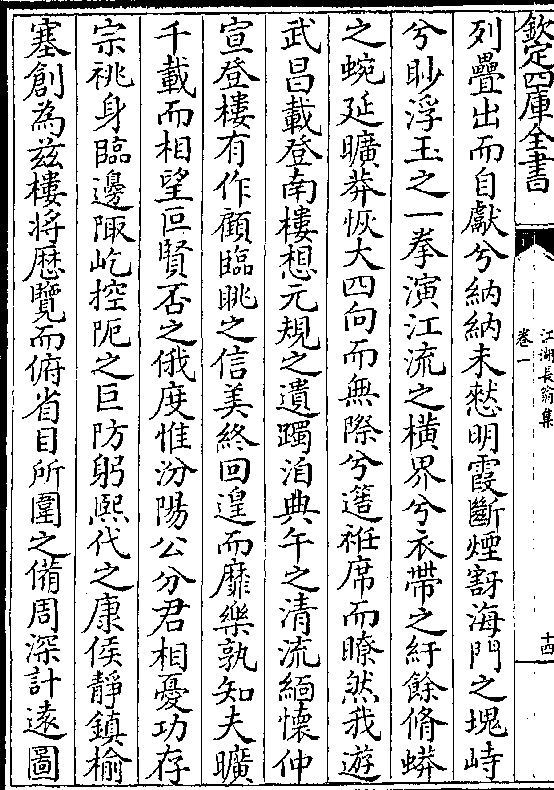 欽定四庫全書
江湖長翁集
卷一
十四
列疊出而自獻兮納納未愁明霞斷煙豁海門之塊峙
兮眇浮玉之一拳演江流之橫界兮衣帶之紆餘脩蟒
之蜿延曠莽恢大四向而無際兮簉袵席而瞭然我遊
武昌載登南樓想元規之遺躅洎典午之清流緬懷仲
宣登樓有作顧臨眺之信美終回遑而靡樂孰知夫曠
千載而相望叵賢否之俄度惟汾陽公分君相憂功存
宗祧身臨邊陬屹控阨之巨防躬熙代之康侯靜鎮榆
塞創為兹樓将厯覽而俯省目所圍之備周深計遠圖